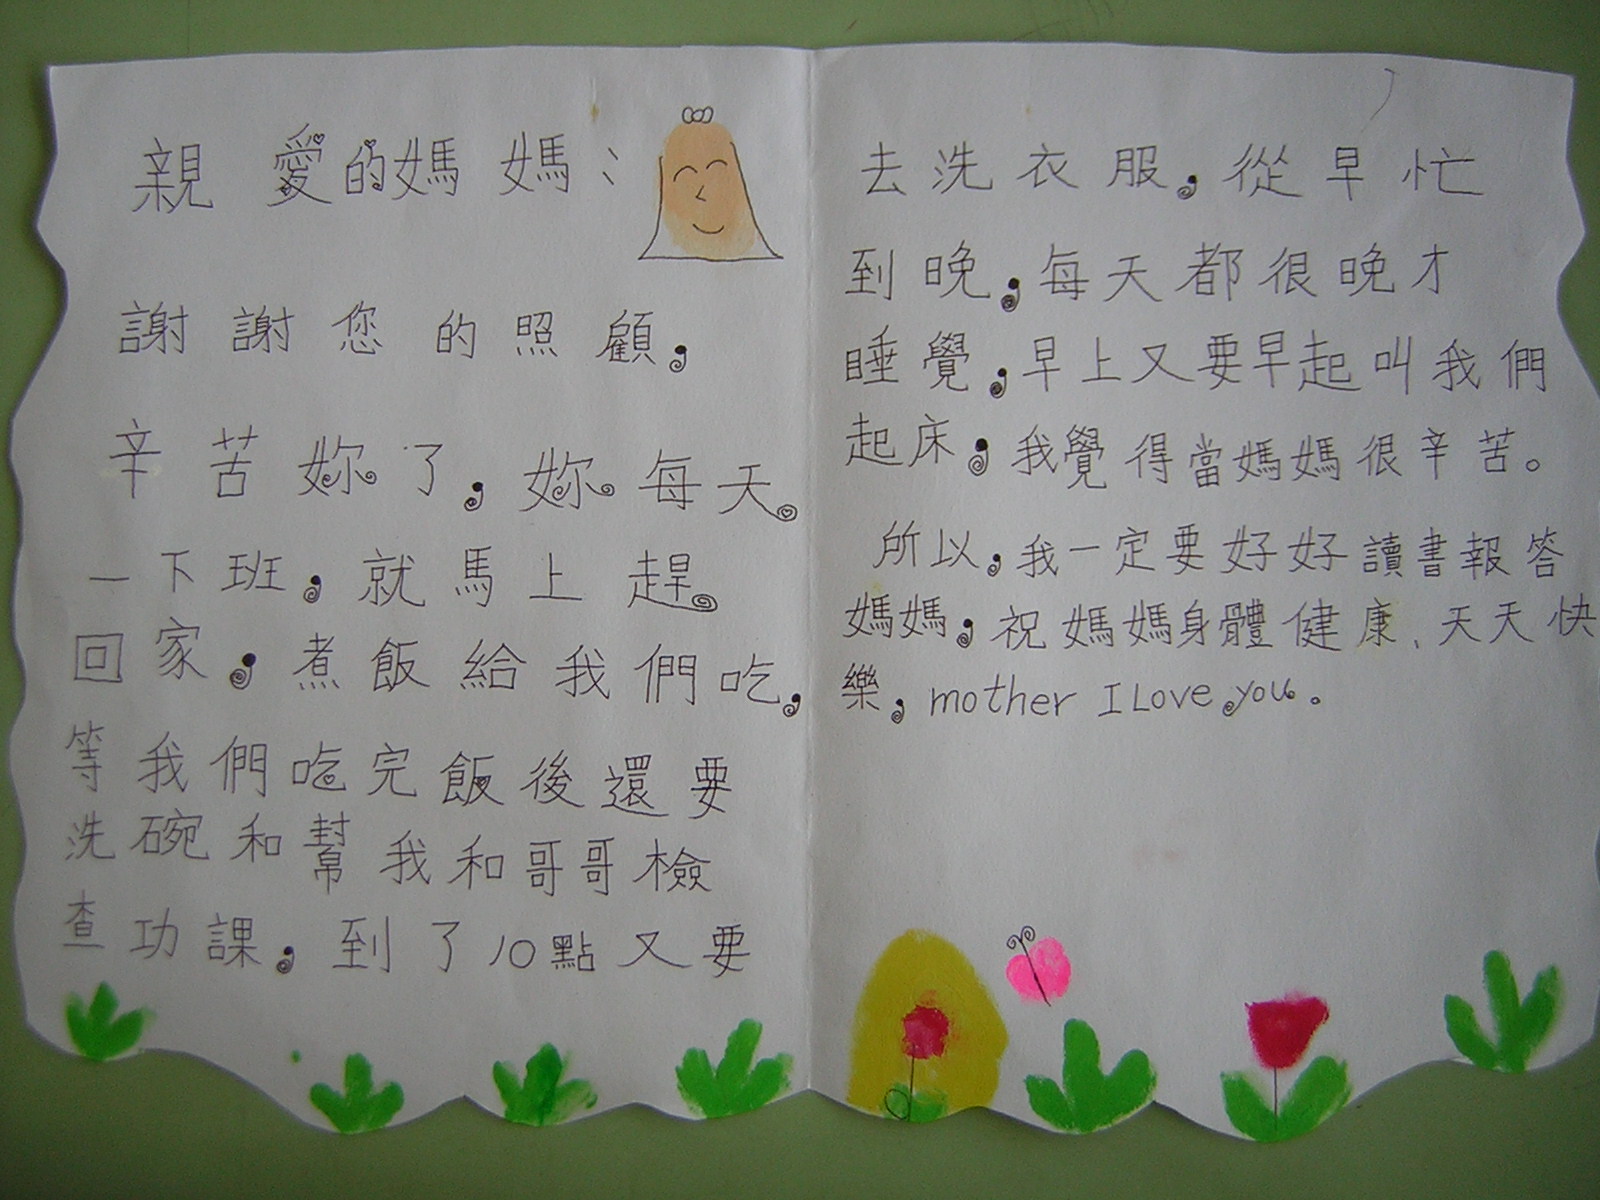 親愛的媽媽：
謝謝您的照顧，
辛苦妳了，妳每天
一下班，就馬上趕
回家，煮飯給我們吃，
等我們吃完飯後還要
洗碗和幫我和哥哥檢
查功課，到了10點又要
去洗衣服，從早忙
到晚，每天都很晚才
睡覺，早上又要早起叫我們
起床，我覺得當媽媽很辛苦。
所以，我一定要好好讀書報答
媽媽，祝媽媽身體健康、天天快
樂，mother I Love you。